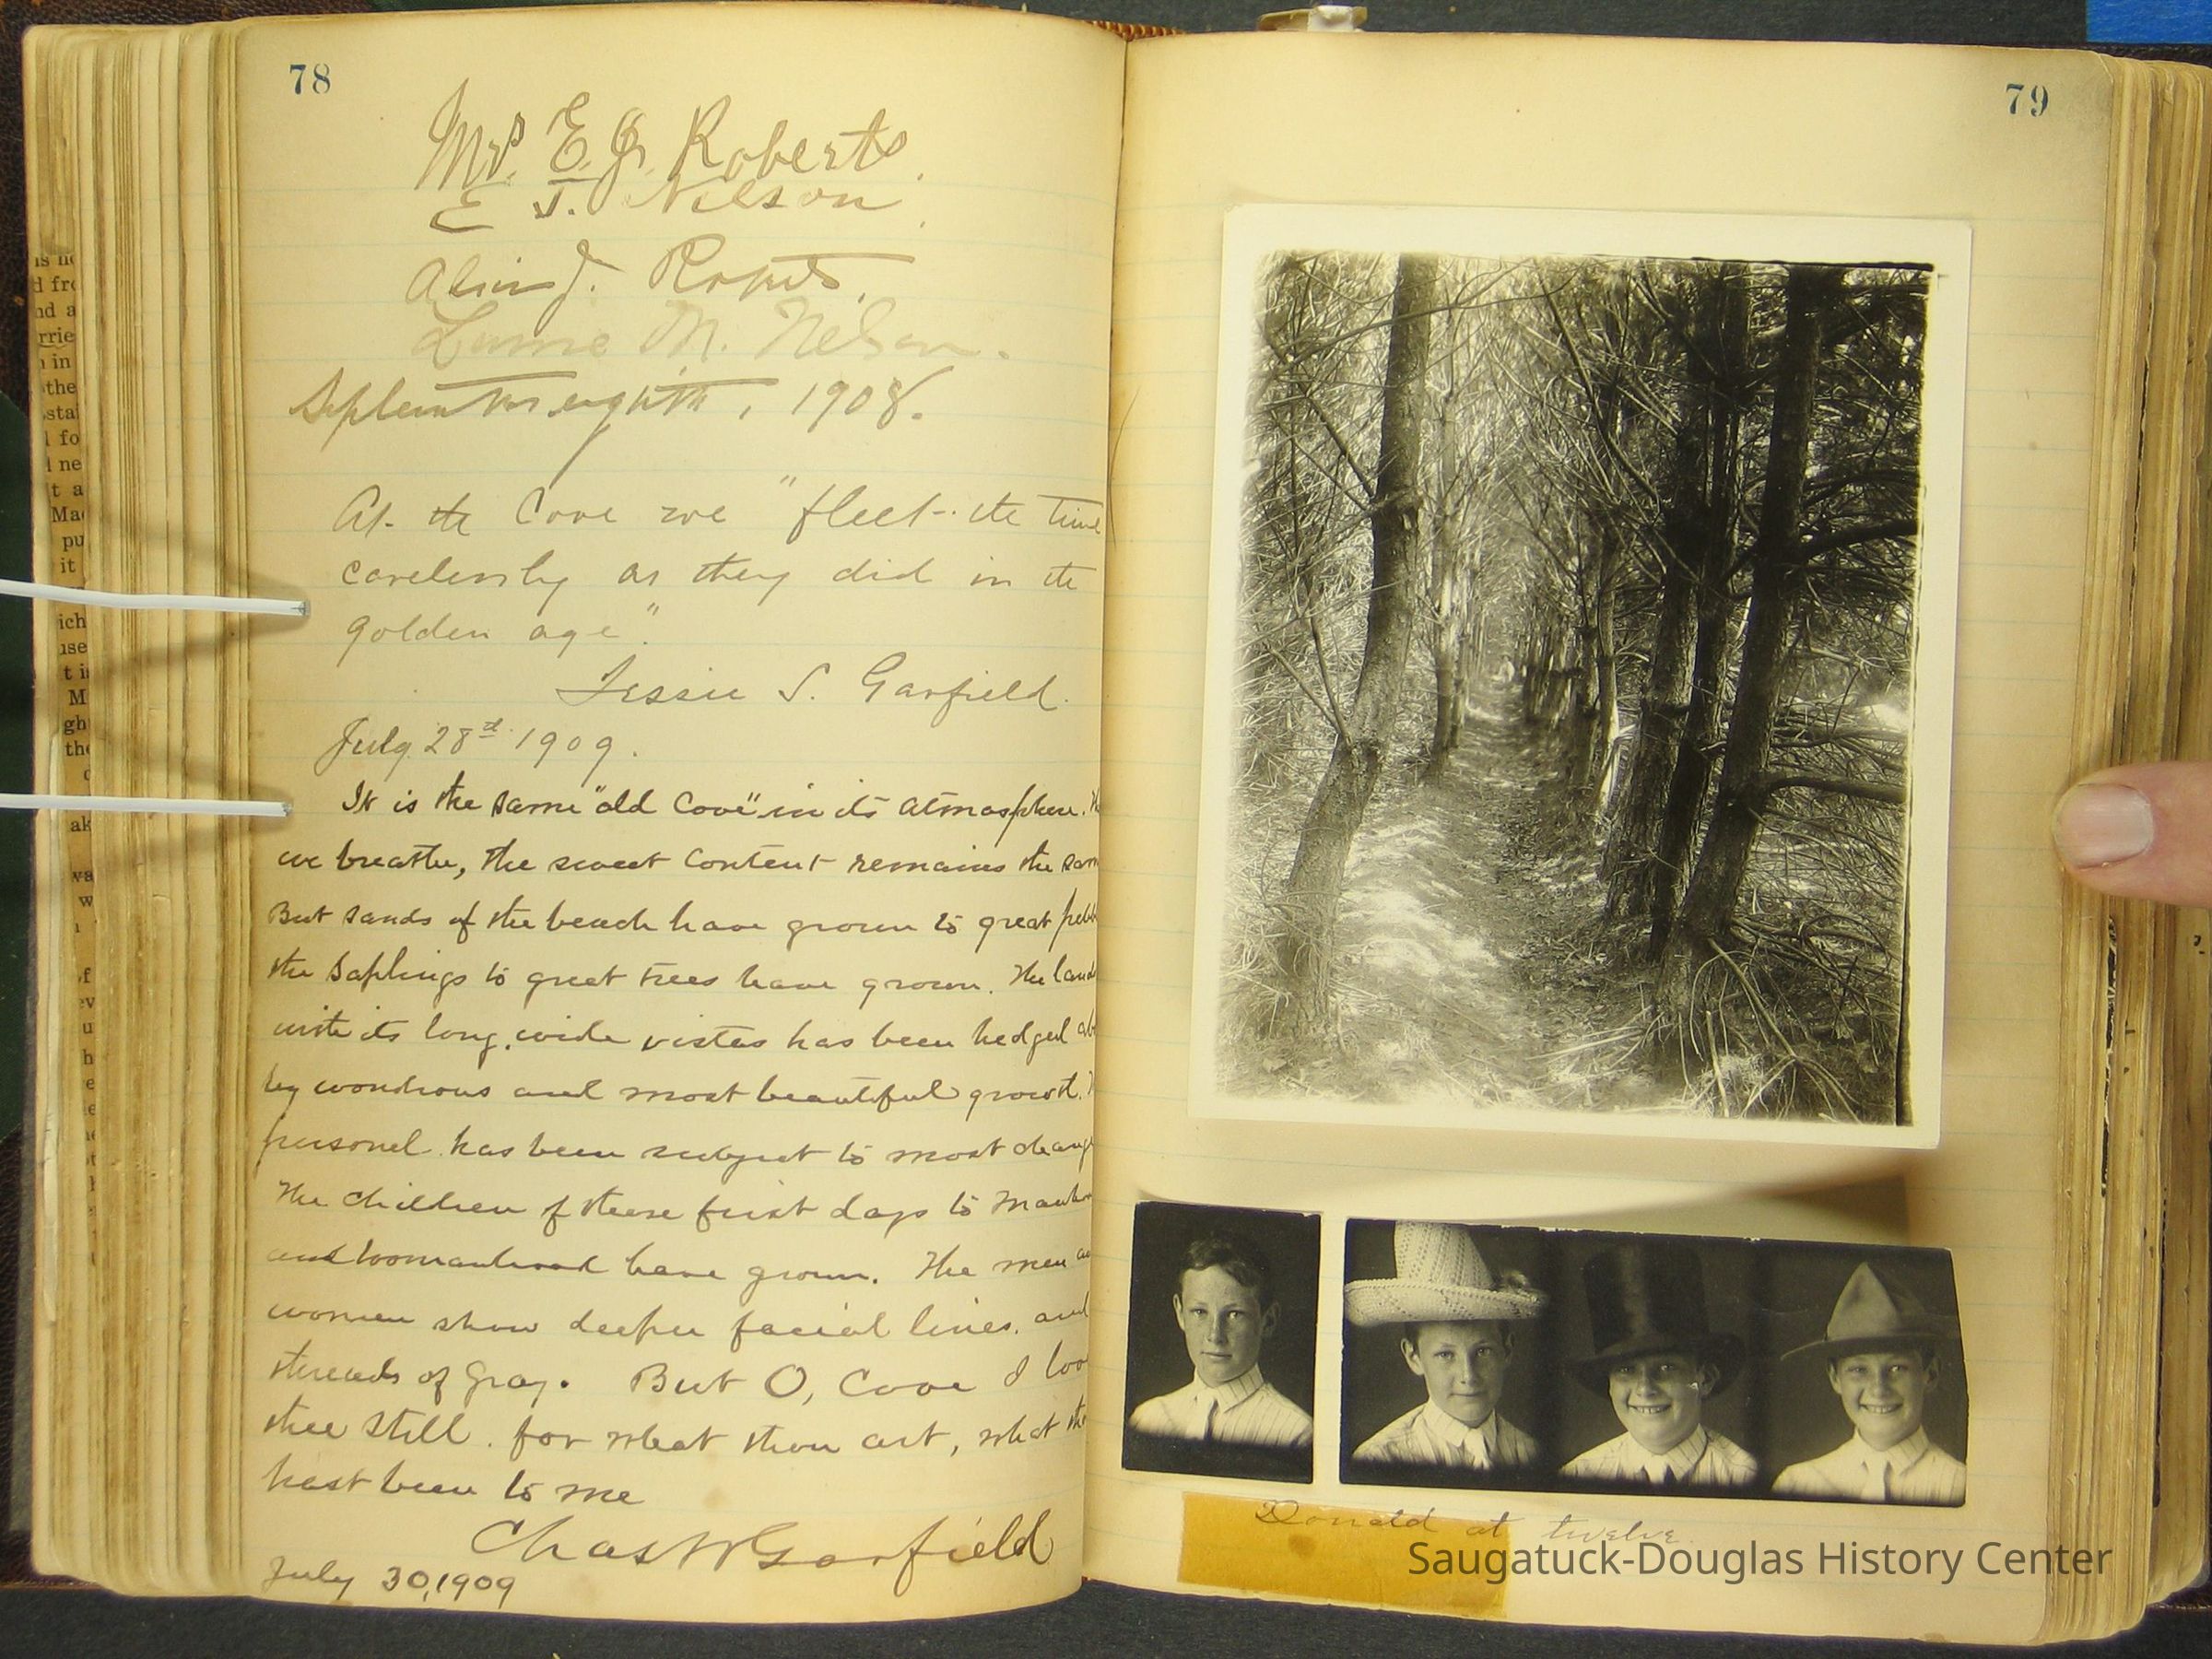 78
Mrs. E. J. Roberts.
E J. Nelson.
J. Roberts.
M. Nelson.
September eighth, 1908.
At the Cove we "fleet the time
carelessly as they did in the
golden age".
Jessie S. Garfield.
July 28th 1909.
It is the same "old Cove" in its atmosphere.
we breathe, the sweet content remains the
But sands of the beach have grown to great
the saplings to great trees have grown. The
with its long, wide vistas has been hedged
by wondrous and most beautiful growth.
personel has been subject to most
The children of these first days to
and womanhood have grown. The men
women show deeper facial lines, and
threads of gray. But O, Cove I
thee still. for what thou art, what
hast been to me
Chas W Garfield
July 30, 1909
79
Donald at twelve
Saugatuck-Douglas History Center
is
d
nd a
rrie
in
the
fo
ne
t a
pu
it
ich
use
M